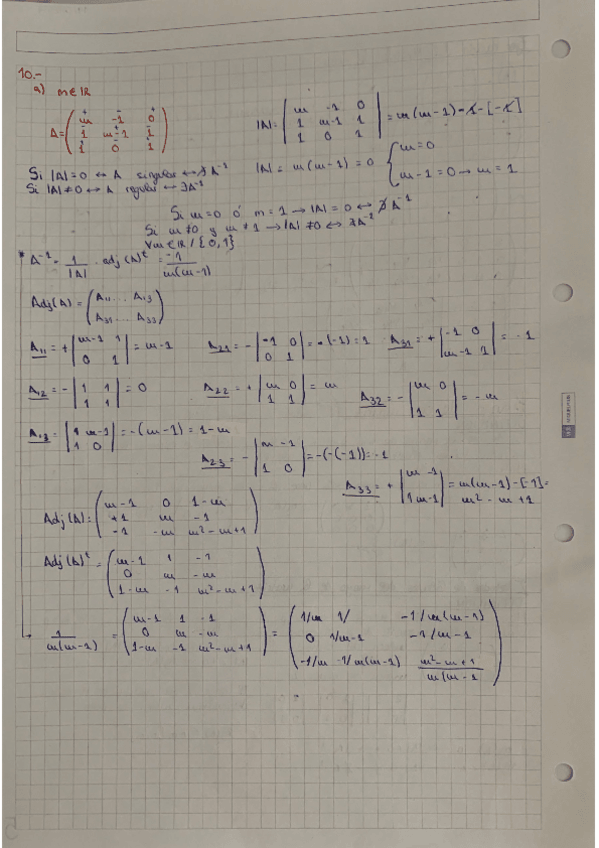 10.-
a) m∈ℝ
A = ( m -1 0 ; 1 m-1 1 ; 1 0 1 )
|A| = | m -1 0 ; 1 m-1 1 ; 1 0 1 | = m(m-1) - 1 - [-1]
Si |A|=0 ↔ A singular ↔ ∄ A⁻¹
Si |A|≠0 ↔ A regular ↔ ∃ A⁻¹
|A| = m(m-1) = 0 { m=0 ; m-1=0 → m=1
Si m=0 ó m=1 → |A|=0 ↔ ∄ A⁻¹
Si m≠0 y m≠1 → |A|≠0 ↔ ∃ A⁻¹
∀m∈ℝ/{0,1}
* A⁻¹ = 1/|A| · adj(A)ᵗ = -1/m(m-1)
Adj(A) = ( A₁₁ ... A₁₃ ; A₃₁ ... A₃₃ )
A₁₁ = + | m-1 1 ; 0 1 | = m-1
A₂₁ = - | -1 0 ; 0 1 | = -(-1) = 1
A₃₁ = + | -1 0 ; m-1 1 | = -1
A₁₂ = - | 1 1 ; 1 1 | = 0
A₂₂ = + | m 0 ; 1 1 | = m
A₃₂ = - | m 0 ; 1 1 | = -m
A₁₃ = | 1 m-1 ; 1 0 | = -(m-1) = 1-m
A₂₃ = - | m -1 ; 1 0 | = -(-(-1)) = -1
A₃₃ = + | m -1 ; 1 m-1 | = m(m-1) - [-1] =
m² - m + 1
Adj(A) = ( m-1 0 1-m ; +1 m -1 ; -1 -m m²-m+1 )
Adj(A)ᵗ = ( m-1 1 -1 ; 0 m -m ; 1-m -1 m²-m+1 )
1/m(m-1) = ( m-1 1 -1 ; 0 m -m ; 1-m -1 m²-m+1 ) = ( 1/m 1/ -1/m(m-1) ; 0 1/m-1 -1/m-1 ; -1/m -1/m(m-1) m²-m+1/m(m-1 )